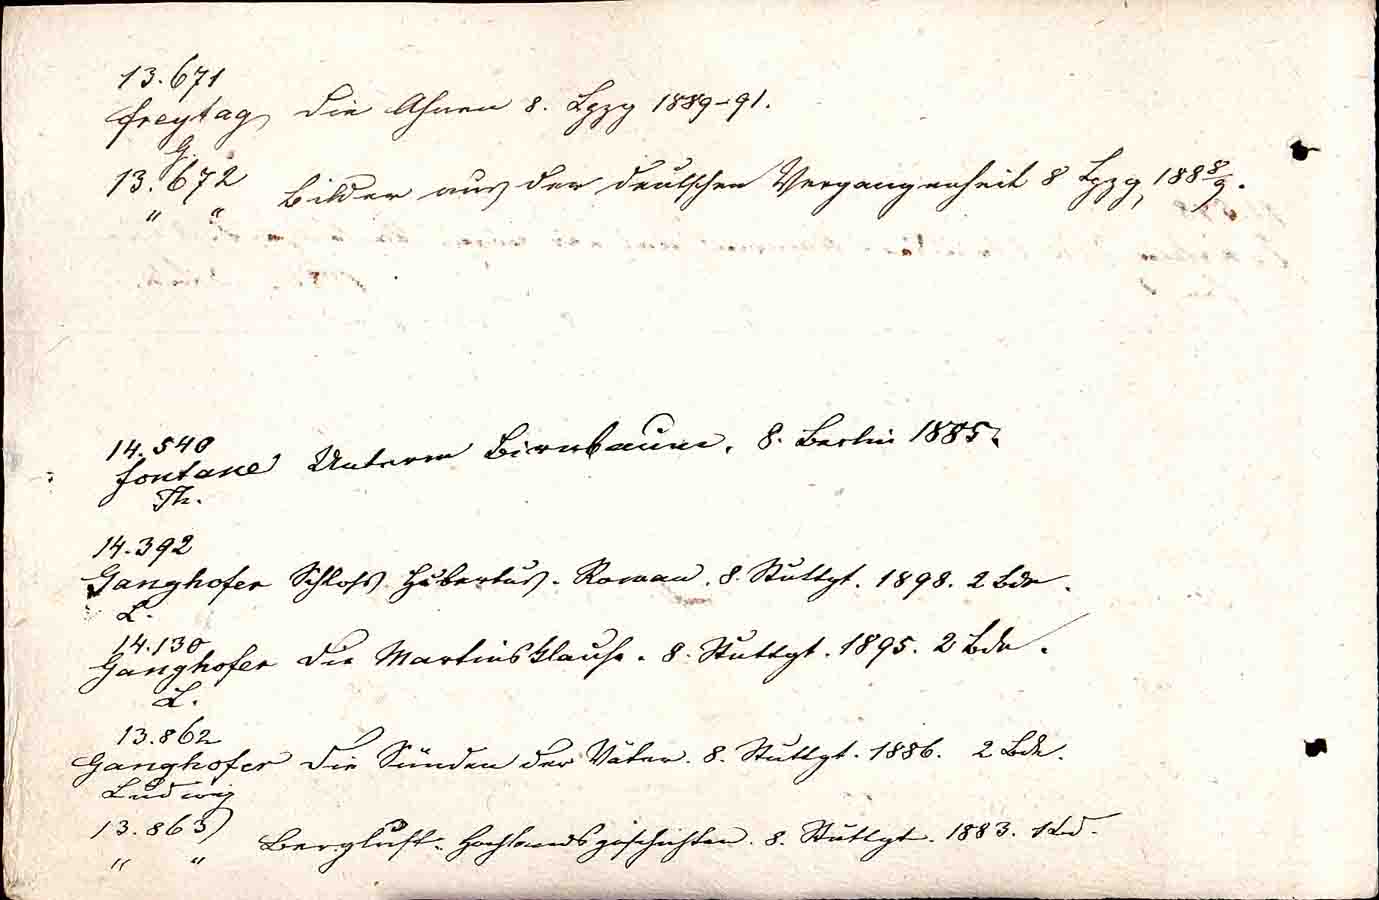 13.671
Freytag Die Ahnen 8. Lpzg 1889-91.
G.
13.672 Bilder aus der deutschen Vergangenheit 8 Lpzg, 188 8/9.
" "
14.540
Fontane Unterm Birnbaum. 8. Berlin 1885.
Th.
14.392
Ganghofer Schloß Hubertus. Roman. 8. Stuttgt. 1898. 2 Bde.
L.
14.130
Ganghofer Die Martinsklause. 8. Stuttgt. 1895. 2 Bde.
L.
13.862
Ganghofer Die Sünden der Väter. 8. Stuttgt. 1886. 2 Bde.
Ludwig
13.863 Bergluft. Hochlandsgeschichten. 8. Stuttgt. 1883. 1 Bd.
" "